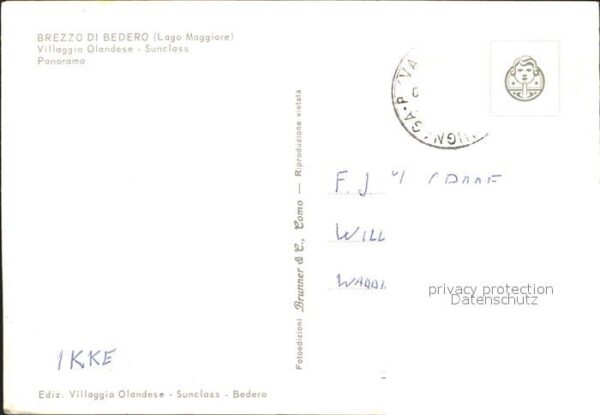 BREZZO DI BEDERO (Lago Maggiore)
Villaggio Olandese - Sunclass
Panorama
Fotoedizioni Brunner & C., Como — Riproduzione vietata
F. J
WILL
privacy protection
Datenschutz
IKKE
Ediz. Villaggio Olandese - Sunclass - Bedero